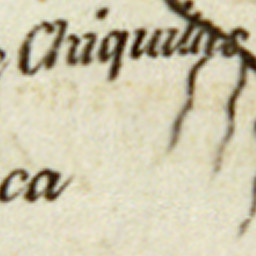 Chiquitos
ca